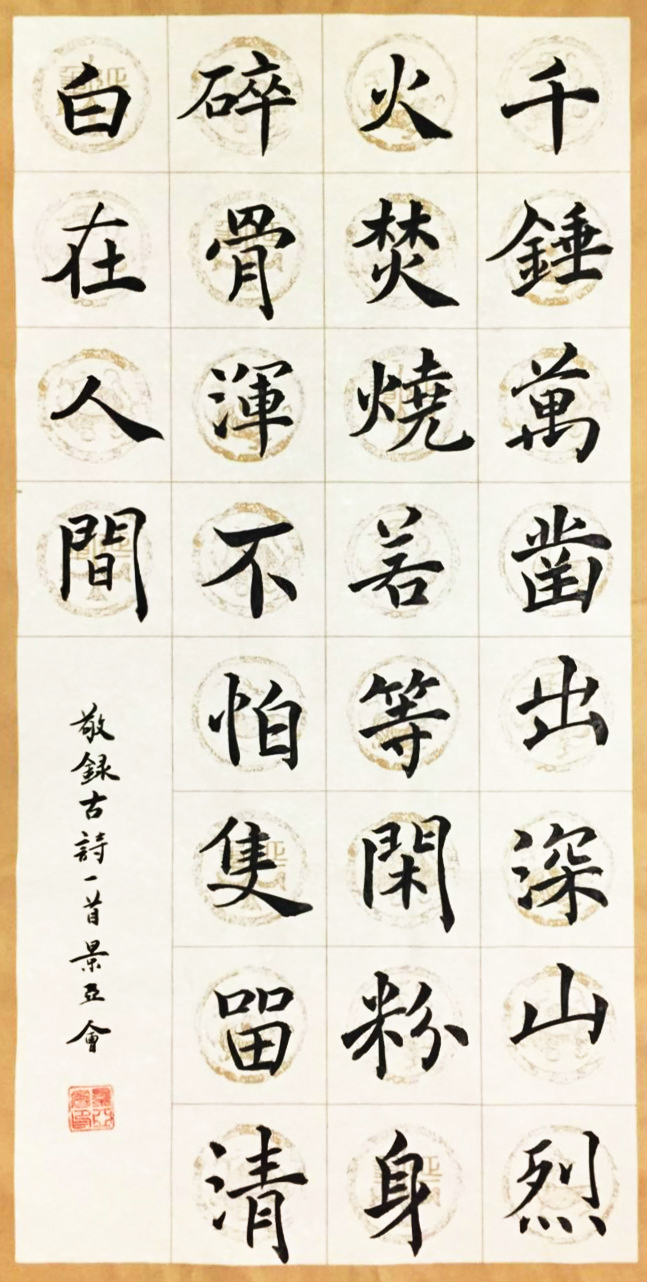 千錘萬凿出深山烈
火焚燒若等閑粉身
碎骨渾不怕隻㽞清
白在人間
敬録古詩一首景亞會